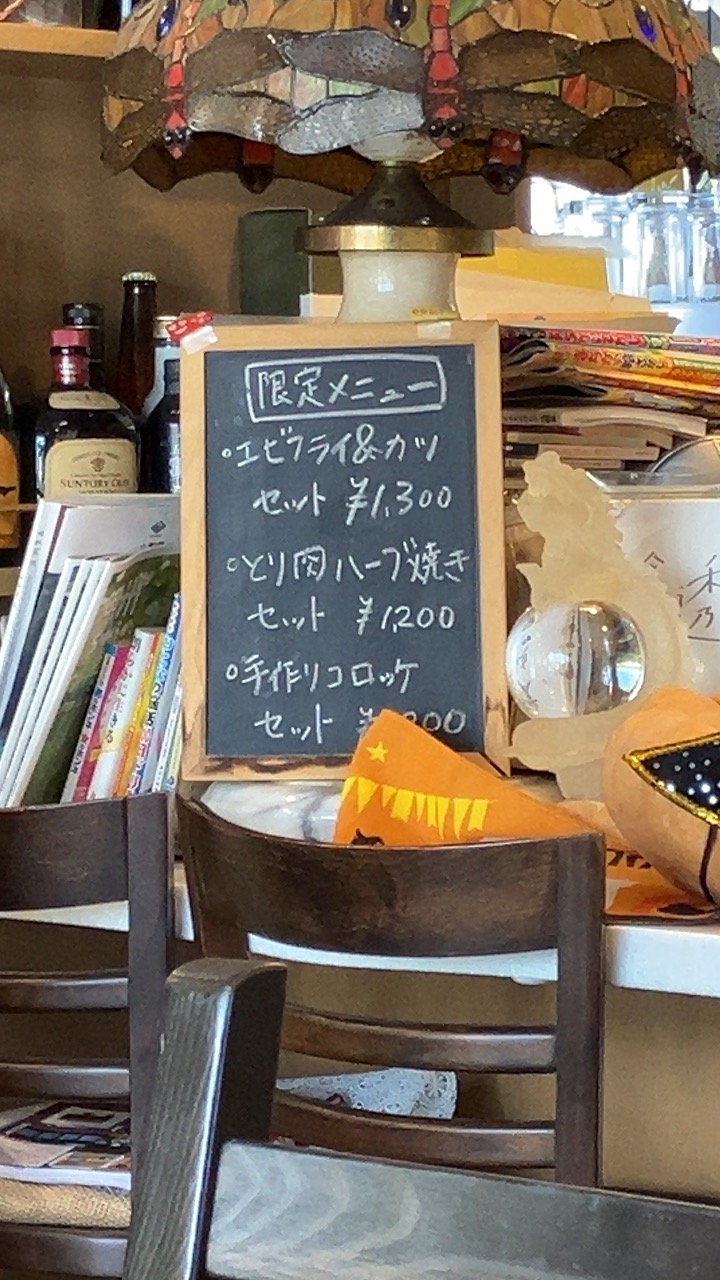 限定メニュー
・エビフライ&カツ
セット ¥1,300
・とり肉ハーブ焼き
セット ¥1,200
・手作りコロッケ
セット
SUNTORY OLD